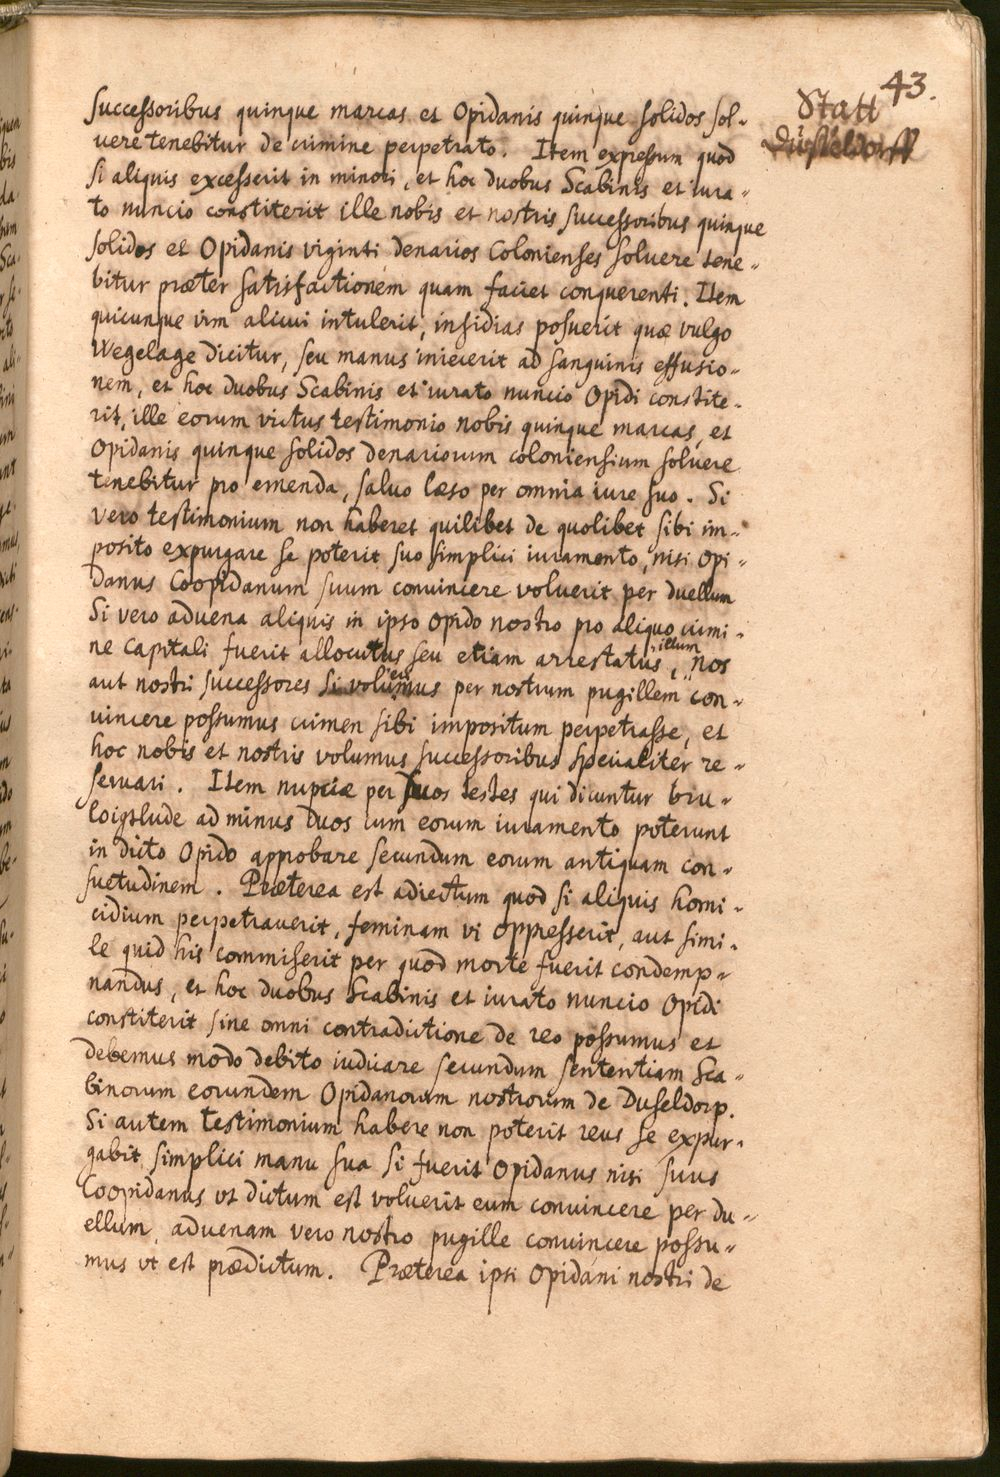 43.
Statt
Düsseldorff
successoribus quinque marcas et Opidanis quinque solidos sol-
uere tenebitur de crimine perpetrato. Item expressum quod
si aliquis excesserit in minori, et hoc duobus Scabinis et iura-
to nuncio constiterit ille nobis et nostris successoribus quinque
solidos et Opidanis viginti denarios Colonienses soluere tene-
bitur præter satisfactionem quam faciet conquerenti. Item
quicunque vim alicui intulerit, insidias posuerit quæ vulgo
Wegelage dicitur, seu manus iniecerit ad sanguinis effusio-
nem, et hoc duobus Scabinis et iurato nuncio Opidi constite-
rit, ille eorum victus testimonio nobis quinque marcas, et
Opidanis quinque solidos denariorum coloniensium soluere
tenebitur pro emenda, saluo læso per omnia iure suo. Si
vero testimonium non haberet quilibet de quolibet sibi im-
posito expurgare se poterit suo simplici iuramento, nisi opi-
danus Coopidanum suum conuincere voluerit per duellum
Si vero aduena aliquis in ipso opido nostro pro aliquo crimi-
ne capitali fuerit allocutus seu etiam arrestatus, illum nos
aut nostri successores si volumus per nostrum pugillem con-
uincere possumus crimen sibi impositum perpetrasse, et
hoc nobis et nostris volumus successoribus specialiter re-
seruari. Item nuptiæ per suos testes qui dicuntur bru-
loigtslude ad minus duos cum eorum iuramento poterunt
in dicto Opido approbare secundum eorum antiquam con-
suetudinem. Præterea est adiectum quod si aliquis homi-
cidium perpetrauerit, feminam vi oppresserit, aut simi-
le quid his commiserit per quod morte fuerit condemp-
nandus, et hoc duobus Scabinis et iurato nuncio Opidi
constiterit sine omni contradictione de reo possumus et
debemus modo debito iudicare secundum sententiam Sca-
binorum eorundem Opidanorum nostrorum de Duseldorp.
Si autem testimonium habere non poterit reus se expur-
gabit simplici manu sua si fuerit Opidanus nisi suus
Coopidanus vt dictum est voluerit eum conuincere per du-
ellum, aduenam vero nostro pugille conuincere possu-
mus vt est prædictum. Præterea ipsi Opidani nostri de